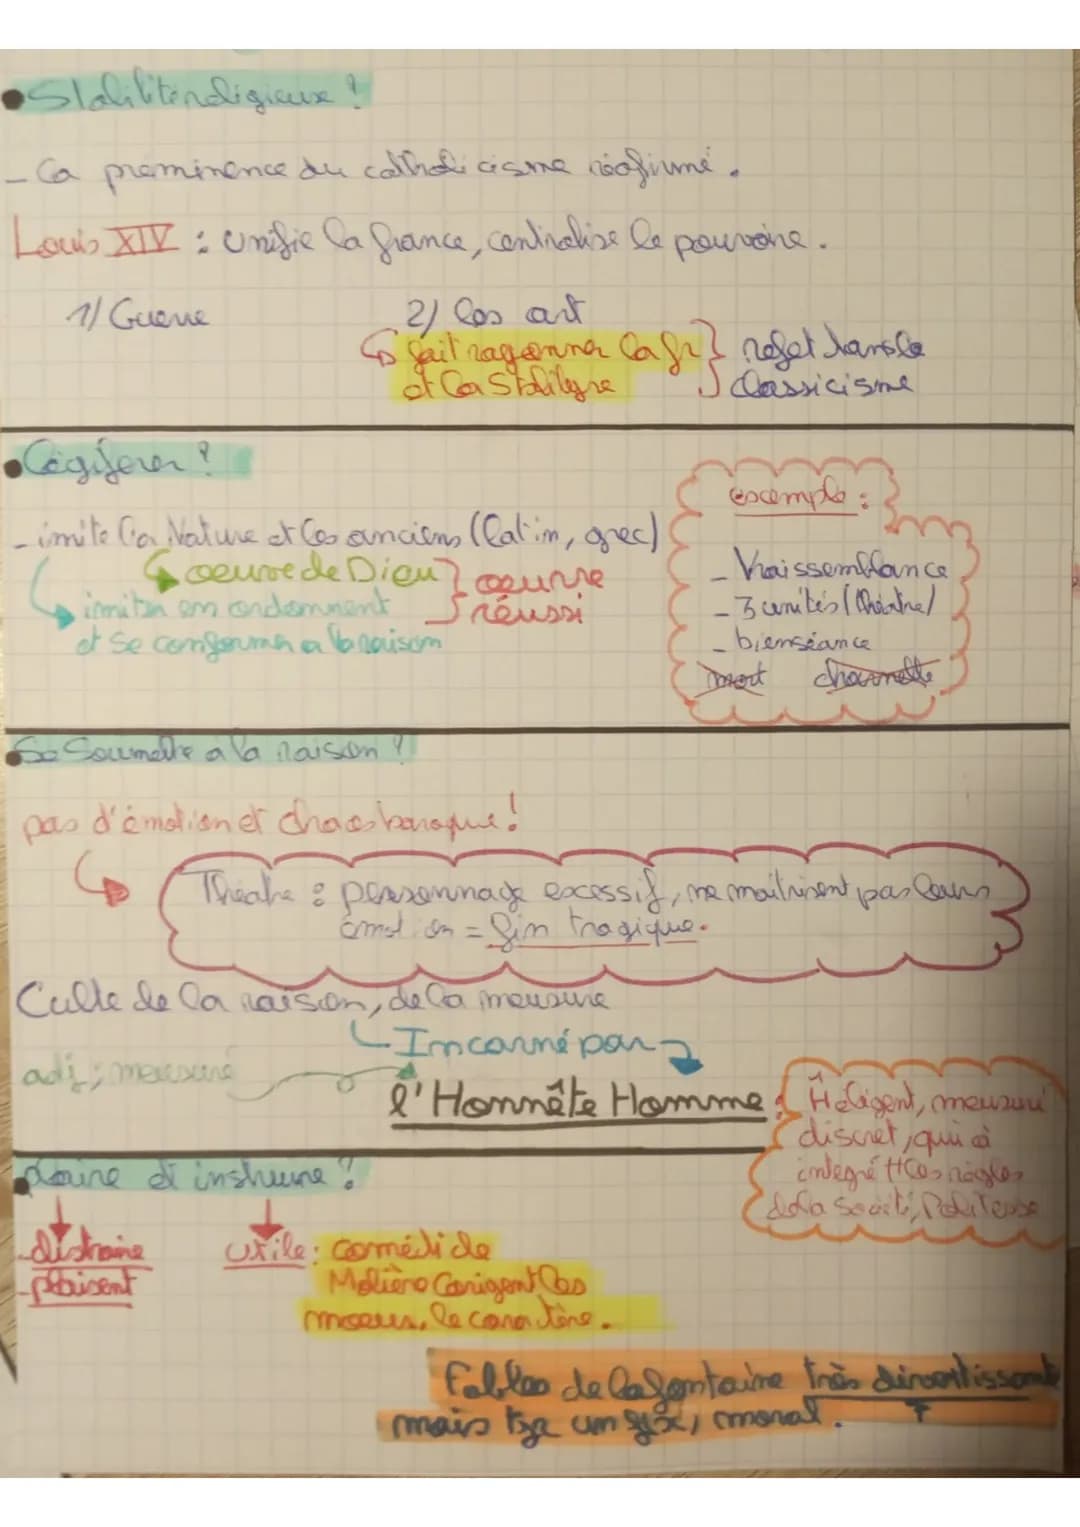 Stabilité religieuse ?
- La preminence du catholicisme réafirmé.
Louis XIV : unifie la france, centralise le pouvoire.
1) Guerre
2) les art
fait rayonner la fr
et la stabilyse
reflet dans le
classicisme
Légiferer ?
- imite la Nature et les anciens (latin, grec)
oeuvre de Dieu
imiter en ordonnent
et se conformer a la raison
oeuvre
réussi
exemple :
- Vraissemblance
- 3 unités (théatre)
- bienséance
mort charnelle
Se Soumettre a la raison ?
pas d'émotion et chaos baroque !
Théatre : personnage excessif, ne maitrisent pas leurs
émotion = fin tragique.
Culte de la raison, de la mesure
Incarné par
adj ; mesuré
l'Honnête Homme :
H eligent, mesuré
discret, qui à
integré tt les règles
de la société, Politesse
plaire et instruire ?
- distraire
- plaisent
utile : comédi de
Molière Corrigent les
moeurs, le caractère.
Fables de la fontaine très divertissante
mais tjr un moral.